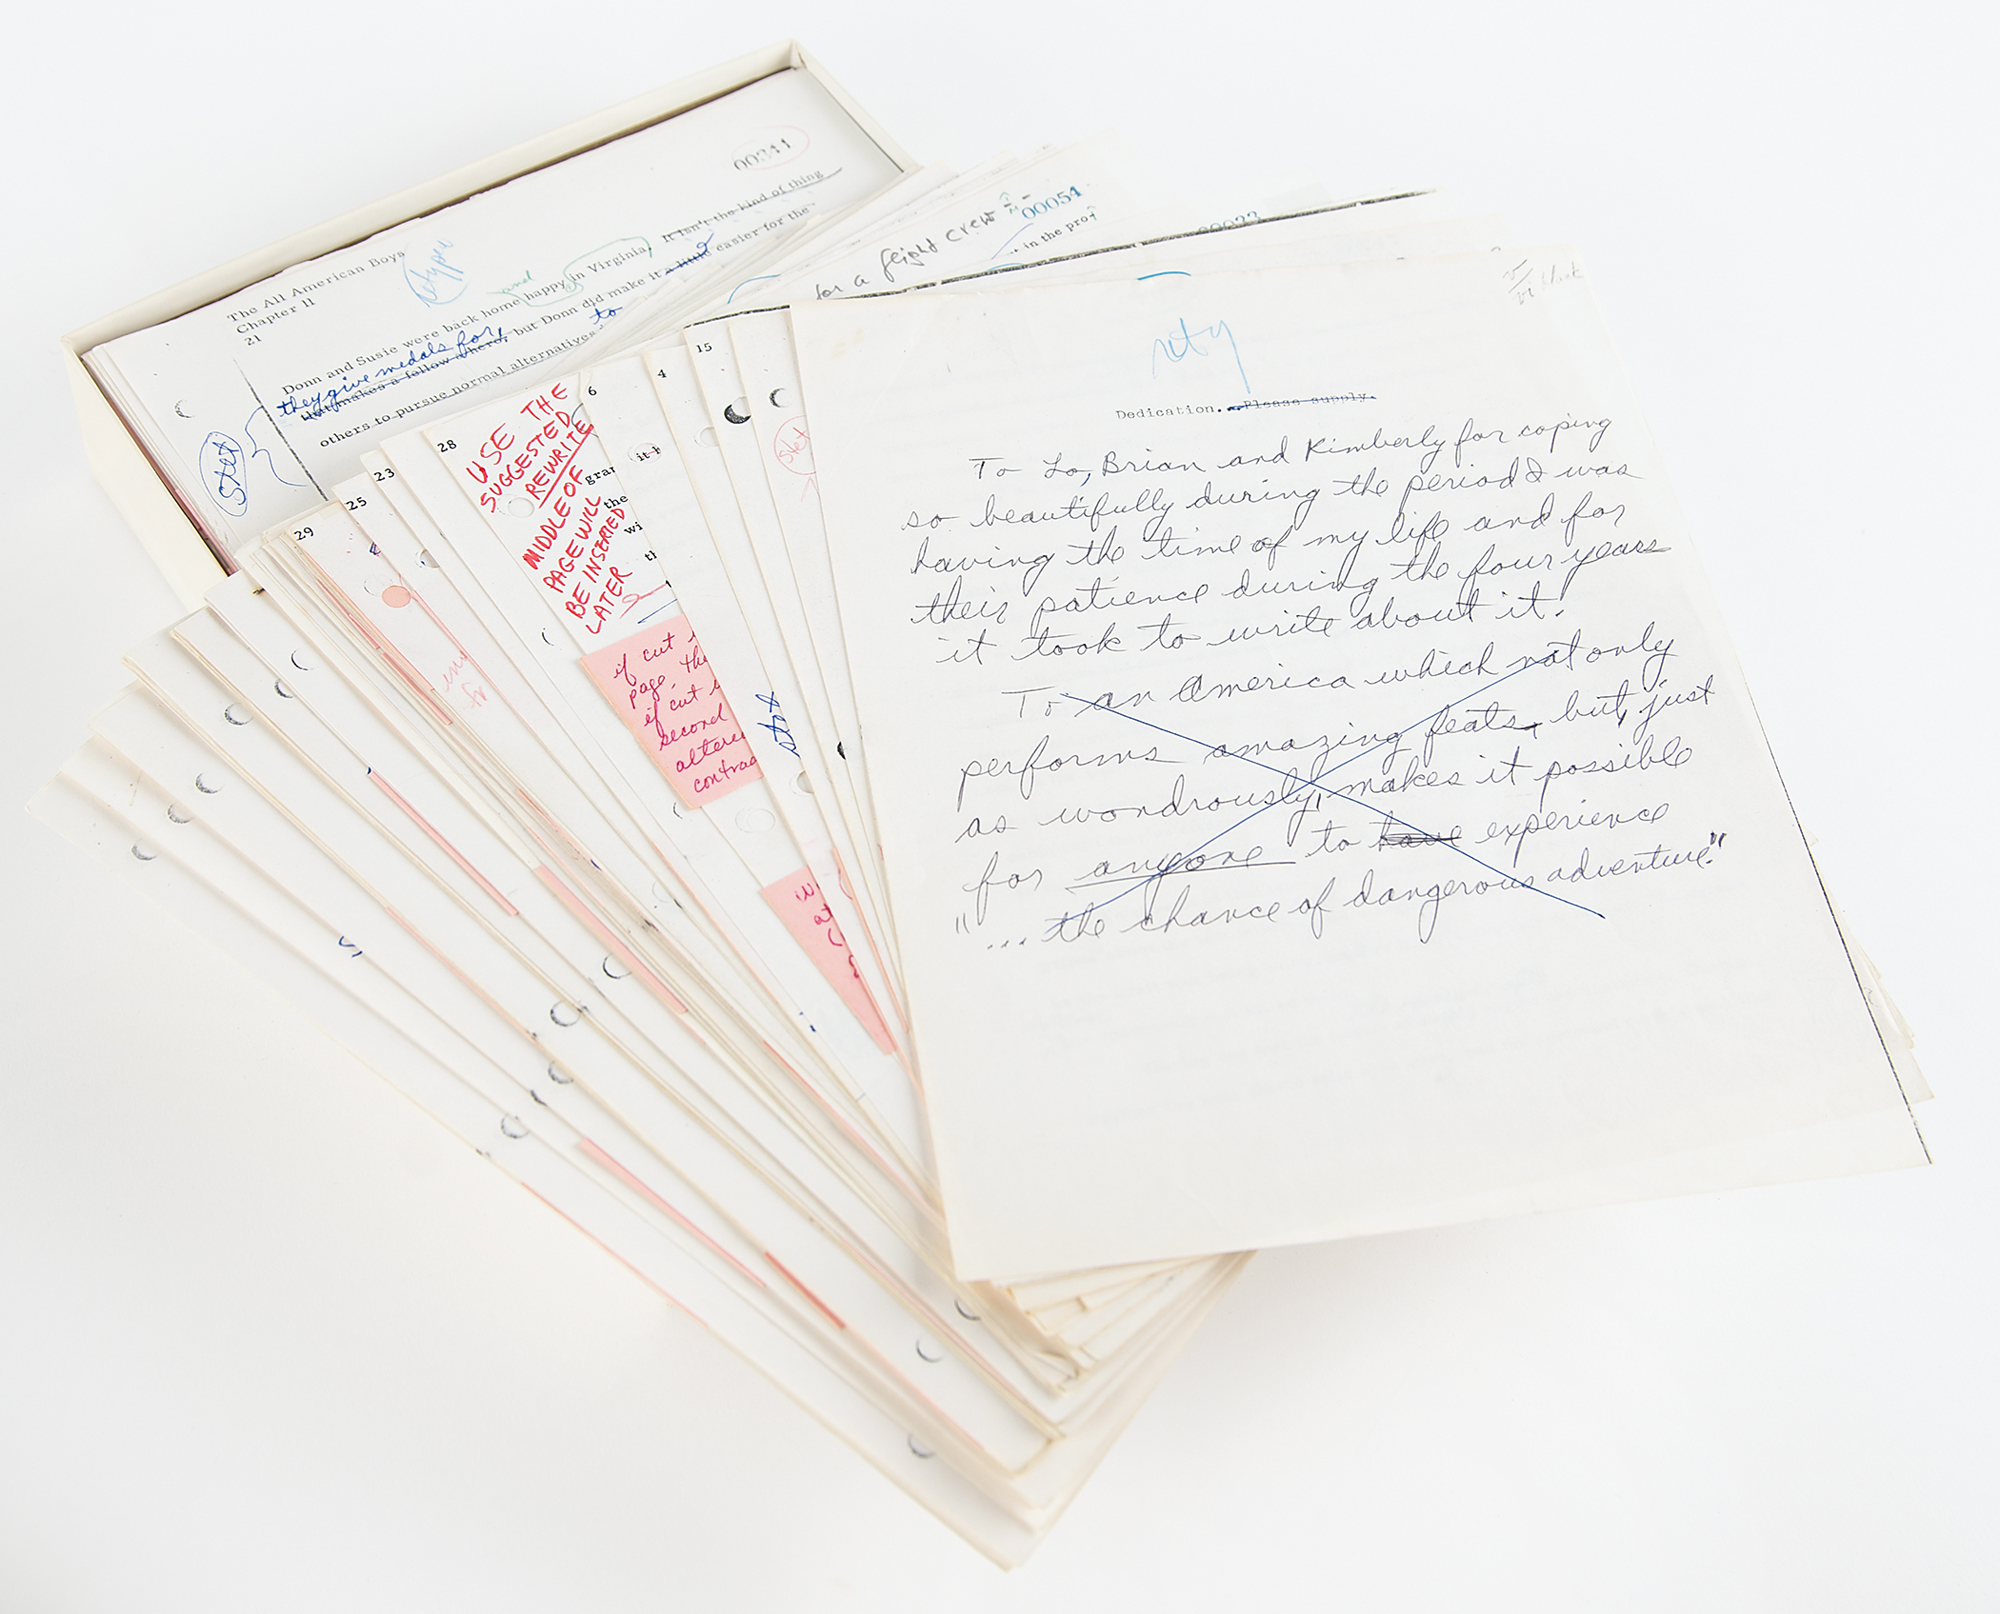 00311
The All American Boys
Chapter 11
21
retype
Donn and Susie were back home happy and in Virginia. It isn't the kind of thing
they give medals for,
that makes a fellow a hero, but Donn did make it a little easier for the
others to pursue normal alternatives to
stet
for a flight crew --
00051
in the pro
00033
15
4
6
28
23
25
29
USE THE
SUGGESTED
REWRITE
MIDDLE OF
PAGE WILL
BE INSERTED
LATER
it
gra
the
wi
th
if cut
page, the
if cut
second
altere
contrad
stet
stet
Dedication. Please supply.
To Lo, Brian and Kimberly for coping
so beautifully during the period I was
having the time of my life and for
their patience during the four years
it took to write about it.
To an America which not only
performs amazing feats, but, just
as wondrously, makes it possible
for anyone to have experience
"... the chance of dangerous adventure."